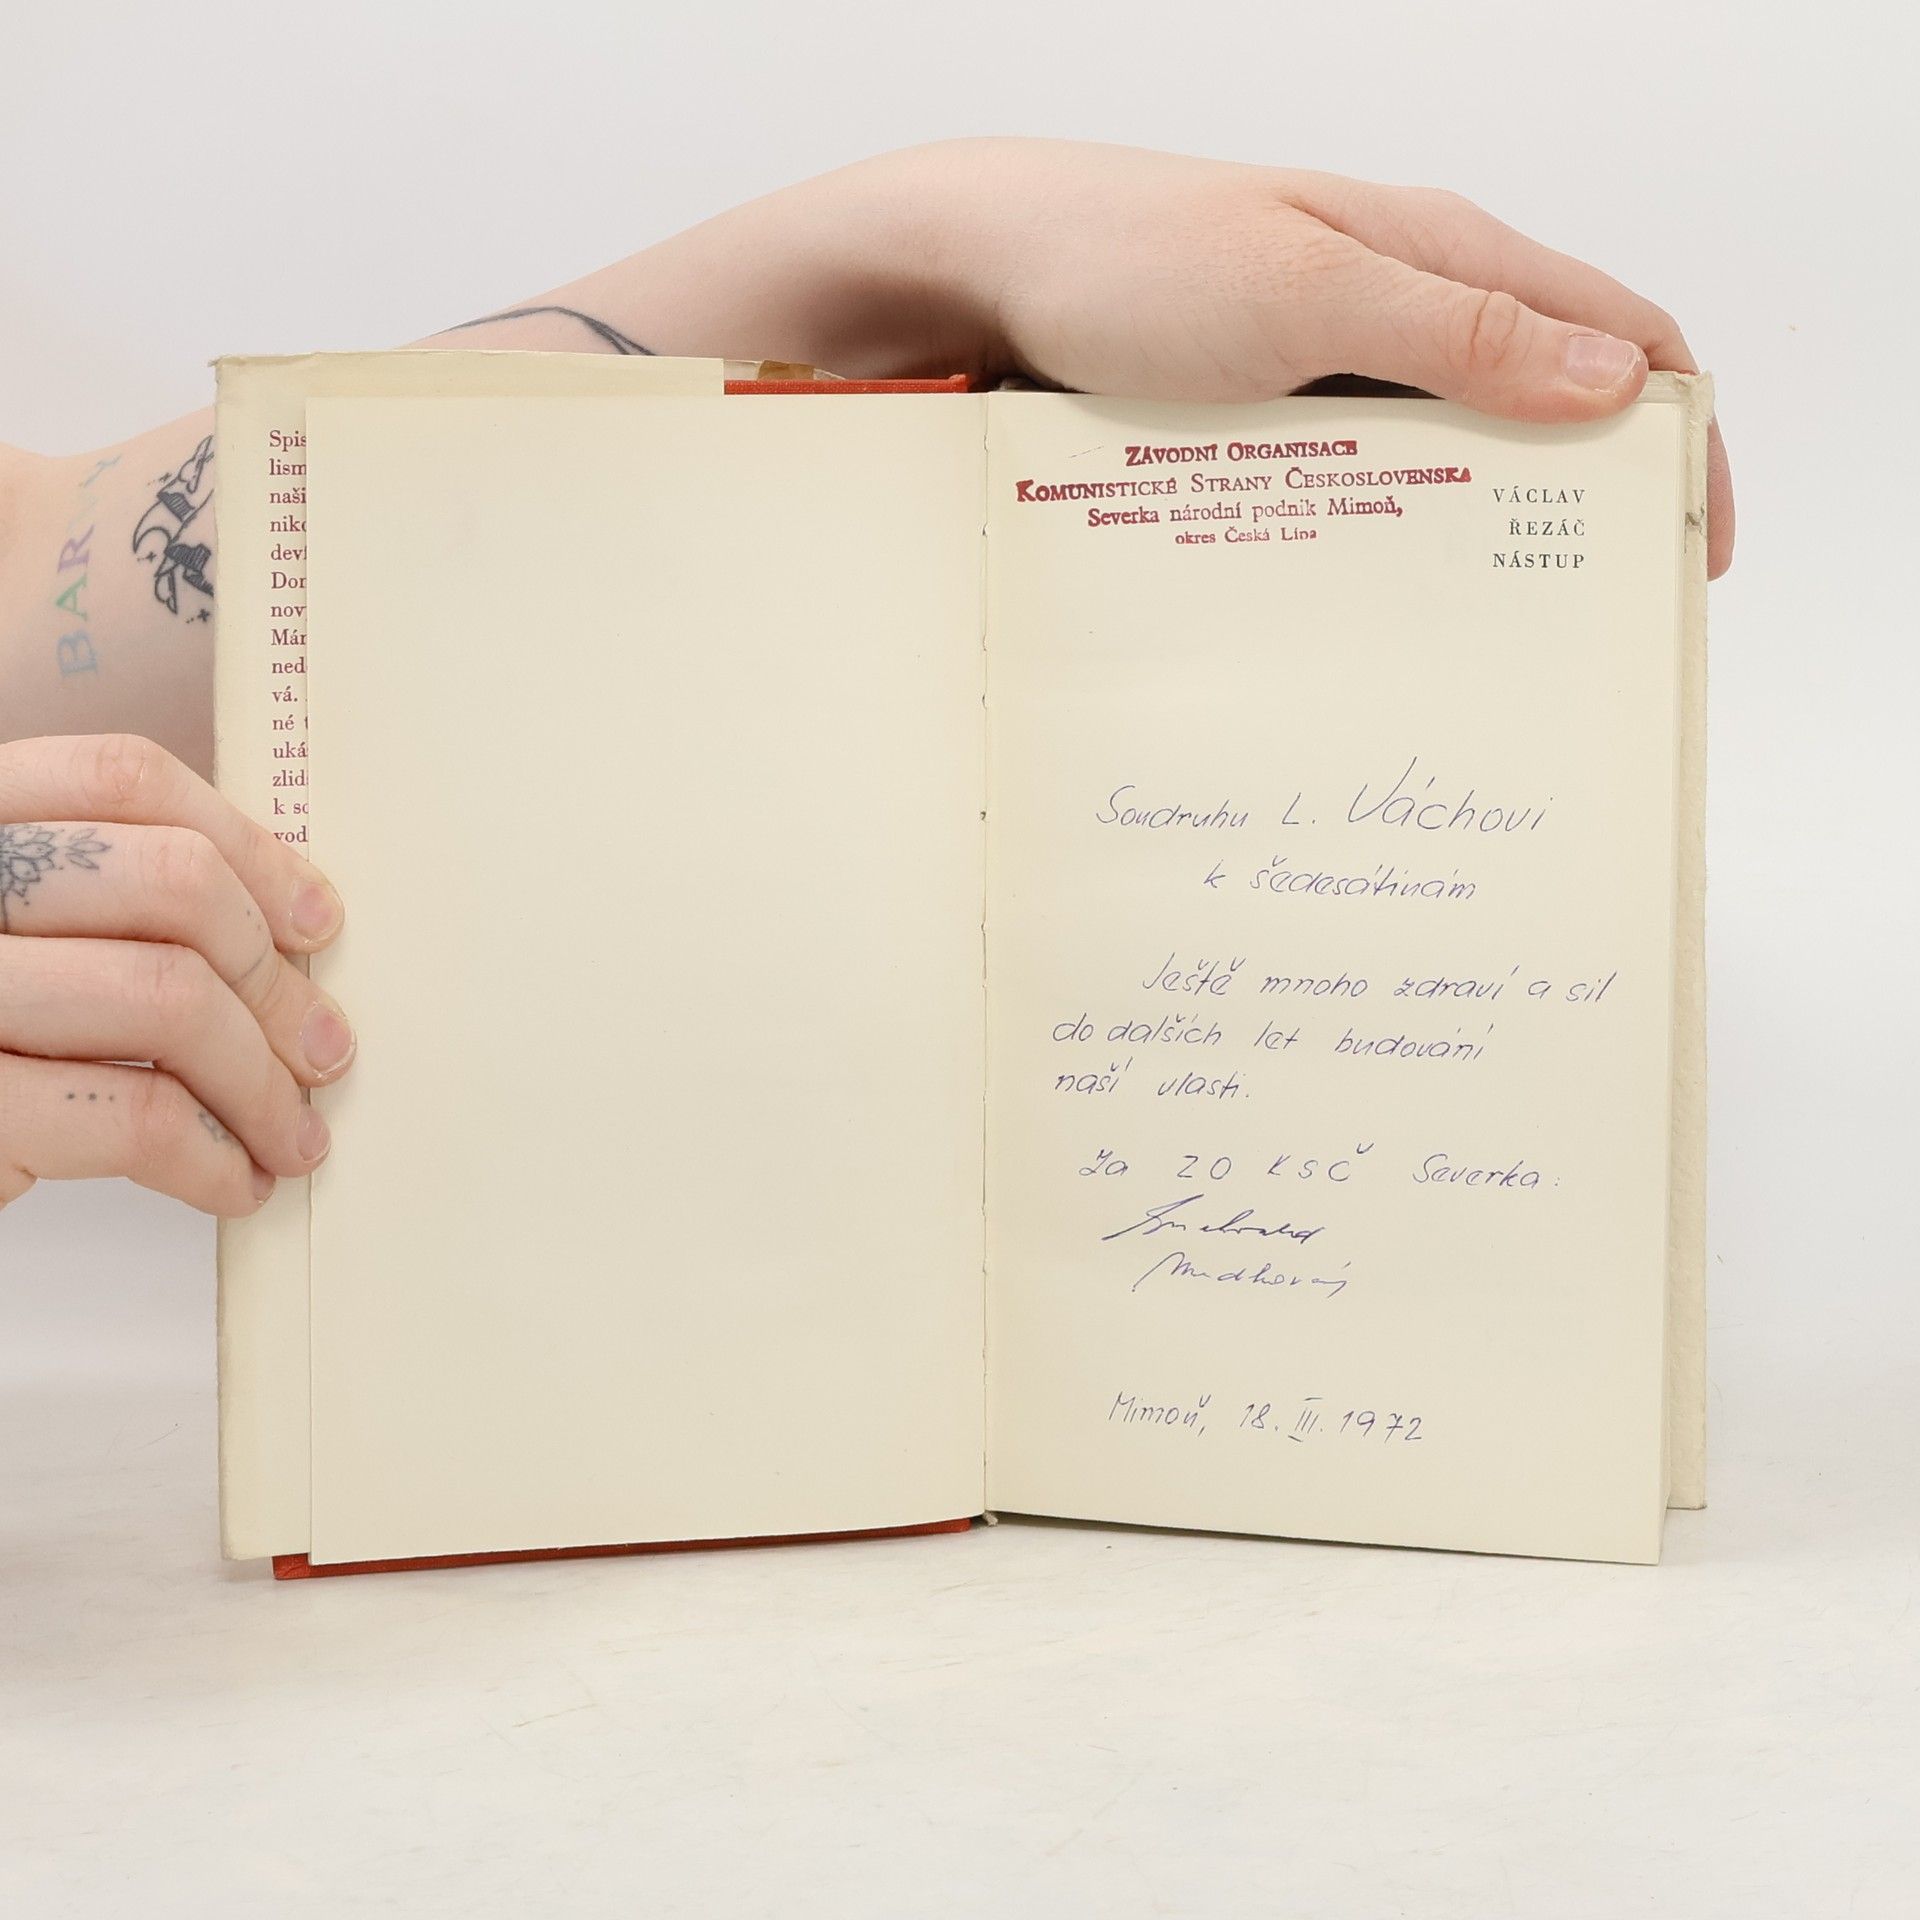 BARNY
Spis
lism
naši
niko
deví
Don
nov
Már
ned
vá.
né t
uká
zlid
k so
vod
ZÁVODNÍ ORGANISACE
KOMUNISTICKÉ STRANY ČESKOSLOVENSKA
Severka národní podnik Mimoň,
okres Česká Lípa
VÁCLAV
ŘEZÁČ
NÁSTUP
Soudruhu L. Váchovi
k šedesátinám
Ještě mnoho zdraví a sil
do dalších let budování
naší vlasti.
Za ZO KSČ Severka:
Mimoň, 18. III. 1972